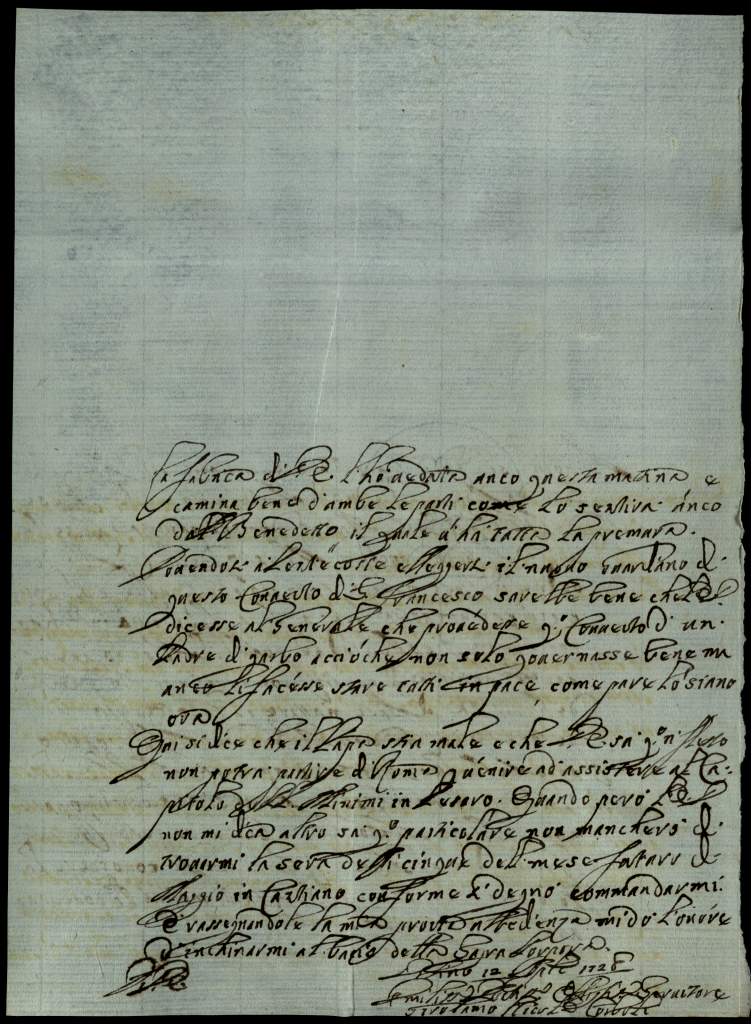 La fabrica di V.E. l'hò veduta anco questa mattina e
camina bene d'ambe le parti come lo sentirà anco
dal Benedetto il quale v'hà tutta la premura.
Dovendosi a Pentecoste eleggere il nuovo Guardiano di
questo Convento di S. Francesco sarebbe bene che V.E.
dicesse al Generale che provedesse q.o Convento d'un
Padre di garbo acciòche non solo governasse bene mà
anco li facesse stare tutti in pace come pare lo siano
ora
Qui si dice che il Papa stia male e che V.E. sù q.o
non potrà partire di Roma p venire ad assistere al Ca-
pitolo de Minimi in Pesaro. Quando però V.E.
non mi dica altro sù q.o particolare non mancherò di
trovarmi la sera delli cinque del mese futuro di
Maggio in Cartiano conforme degnò commandarmi.
E rassegnandole la mia pronta obbedienza mi dò l'onore
d'inchinarmi al bacio della Sagra Porpora.
12 1728
V.E.
Servitore
Girolamo